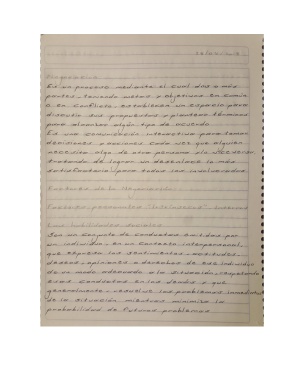 Es un proceso mediante el cual dos o más
partes, teniendo metas y objetivos en común
o en conflicto, establecen un espacio para
discutir sus propuestas y plantean términos
para alcanzar algún tipo de acuerdo.
Es una comunicación interactiva para tomar
decisiones y acciones cada vez que alguien
necesita algo de otra persona y/o necesitan,
tratando de lograr un desenlace lo más
satisfactorio para todos los involucrados.
de la Negociación
habilidades sociales
Son un conjunto de conductas emitidas por
un individuo, en un contexto interpersonal,
que expresa los sentimientos, actitudes,
deseos, opiniones o derechos de ese individuo
de un modo adecuado a la situación, respetando
esas conductas en los demás y que
generalmente resuelve los problemas inmediatos
de la situación mientras minimiza la
probabilidad de futuros problemas